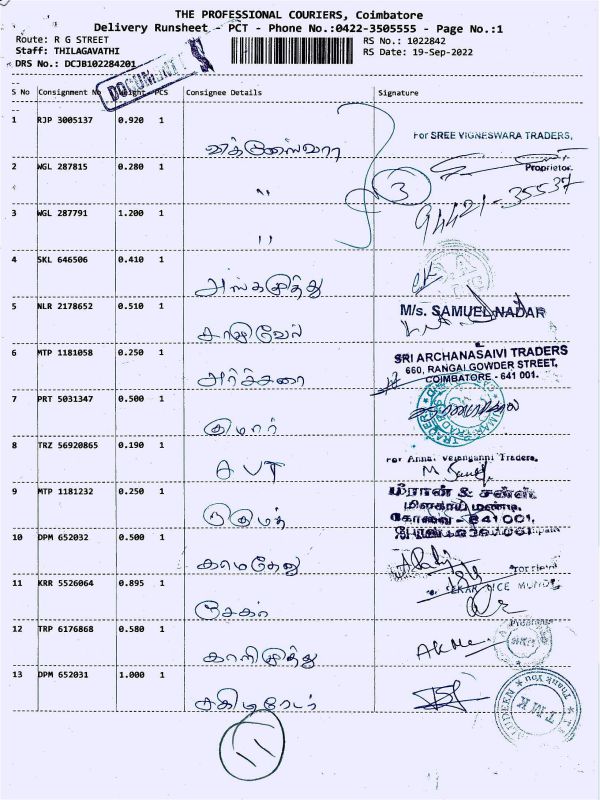 THE PROFESSIONAL COURIERS, Coimbatore
Delivery Runsheet - PCT - Phone No.:0422-3505555 - Page No.:1
Route: R G STREET
RS No.: 1022842
Staff: THILAGAVATHI
RS Date: 19-Sep-2022
DRS No.: DCJB102284201
DOCUMENTS
S No Consignment No Weight PCS Consignee Details Signature
1 RJP 3005137 0.920 1
For SREE VIGNESWARA TRADERS,
விக்னேஸ்வரா
Proprietor.
2 WGL 287815 0.280 1
"
3
94421-35537
3 WGL 287791 1.200 1
"
4 SKL 646506 0.410 1
அங்கமுத்து
5 NLR 2178652 0.510 1
M/s. SAMUEL NADAR
சாமுவேல்
6 MTP 1181058 0.250 1
SRI ARCHANASAIVI TRADERS
660, RANGAI GOWDER STREET,
COIMBATORE - 641 001.
அர்ச்சனா
7 PRT 5031347 0.500 1
குமார்
8 TRZ 56920865 0.190 1
For Annai Velanganni Traders,
AVT
9 MTP 1181232 0.250 1
மீரான் & சன்ஸ்
மிளகாய் மண்டி,
கோவை - 641 001.
10 DPM 652032 0.500 1
காமதேனு
11 KRR 5526064 0.895 1
சேகர்
12 TRP 6176868 0.580 1
காளிமுத்து
13 DPM 652031 1.000 1
T M K
Thank You
11